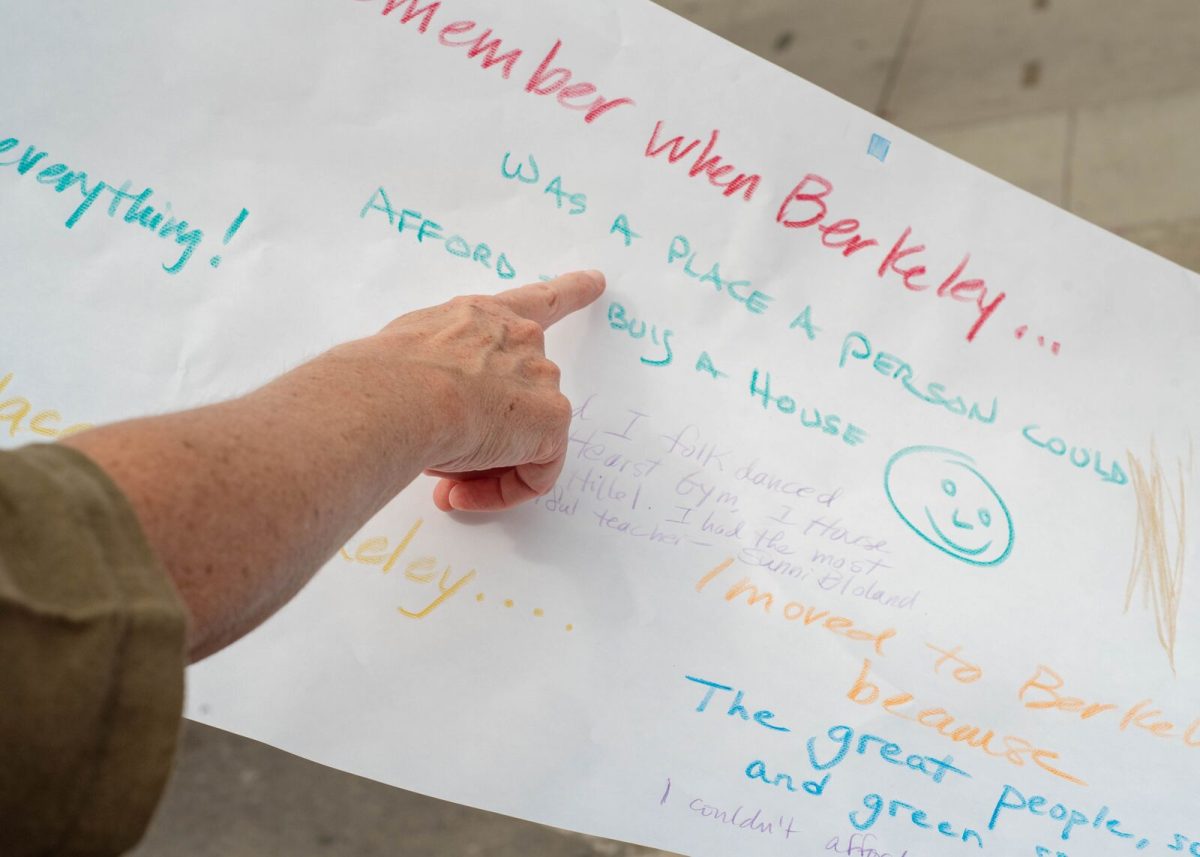 remember when Berkeley...
WAS A PLACE A PERSON COULD
AFFORD BUY A HOUSE
everything!
I folk danced
Hearst Gym, I House
Hillel. I had the most
teacher—
Sunni Bloland.
keley....
I moved to Berkeley
because
The great people,
and green
I couldn't afford